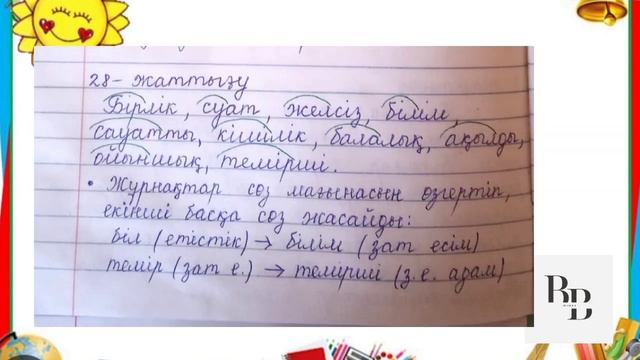 28- жаттығу
Бірлік, суат, желсіз, білім,
сауатты, кішілік, балалық, ақылды,
ойыншық, темірші.
• Жұрнақтар сөз мағынасын өзгертіп,
екінші басқа сөз жасайды:
біл (етістік) → білім (зат есім)
темір (зат е.) → темірші (з.е. адам)